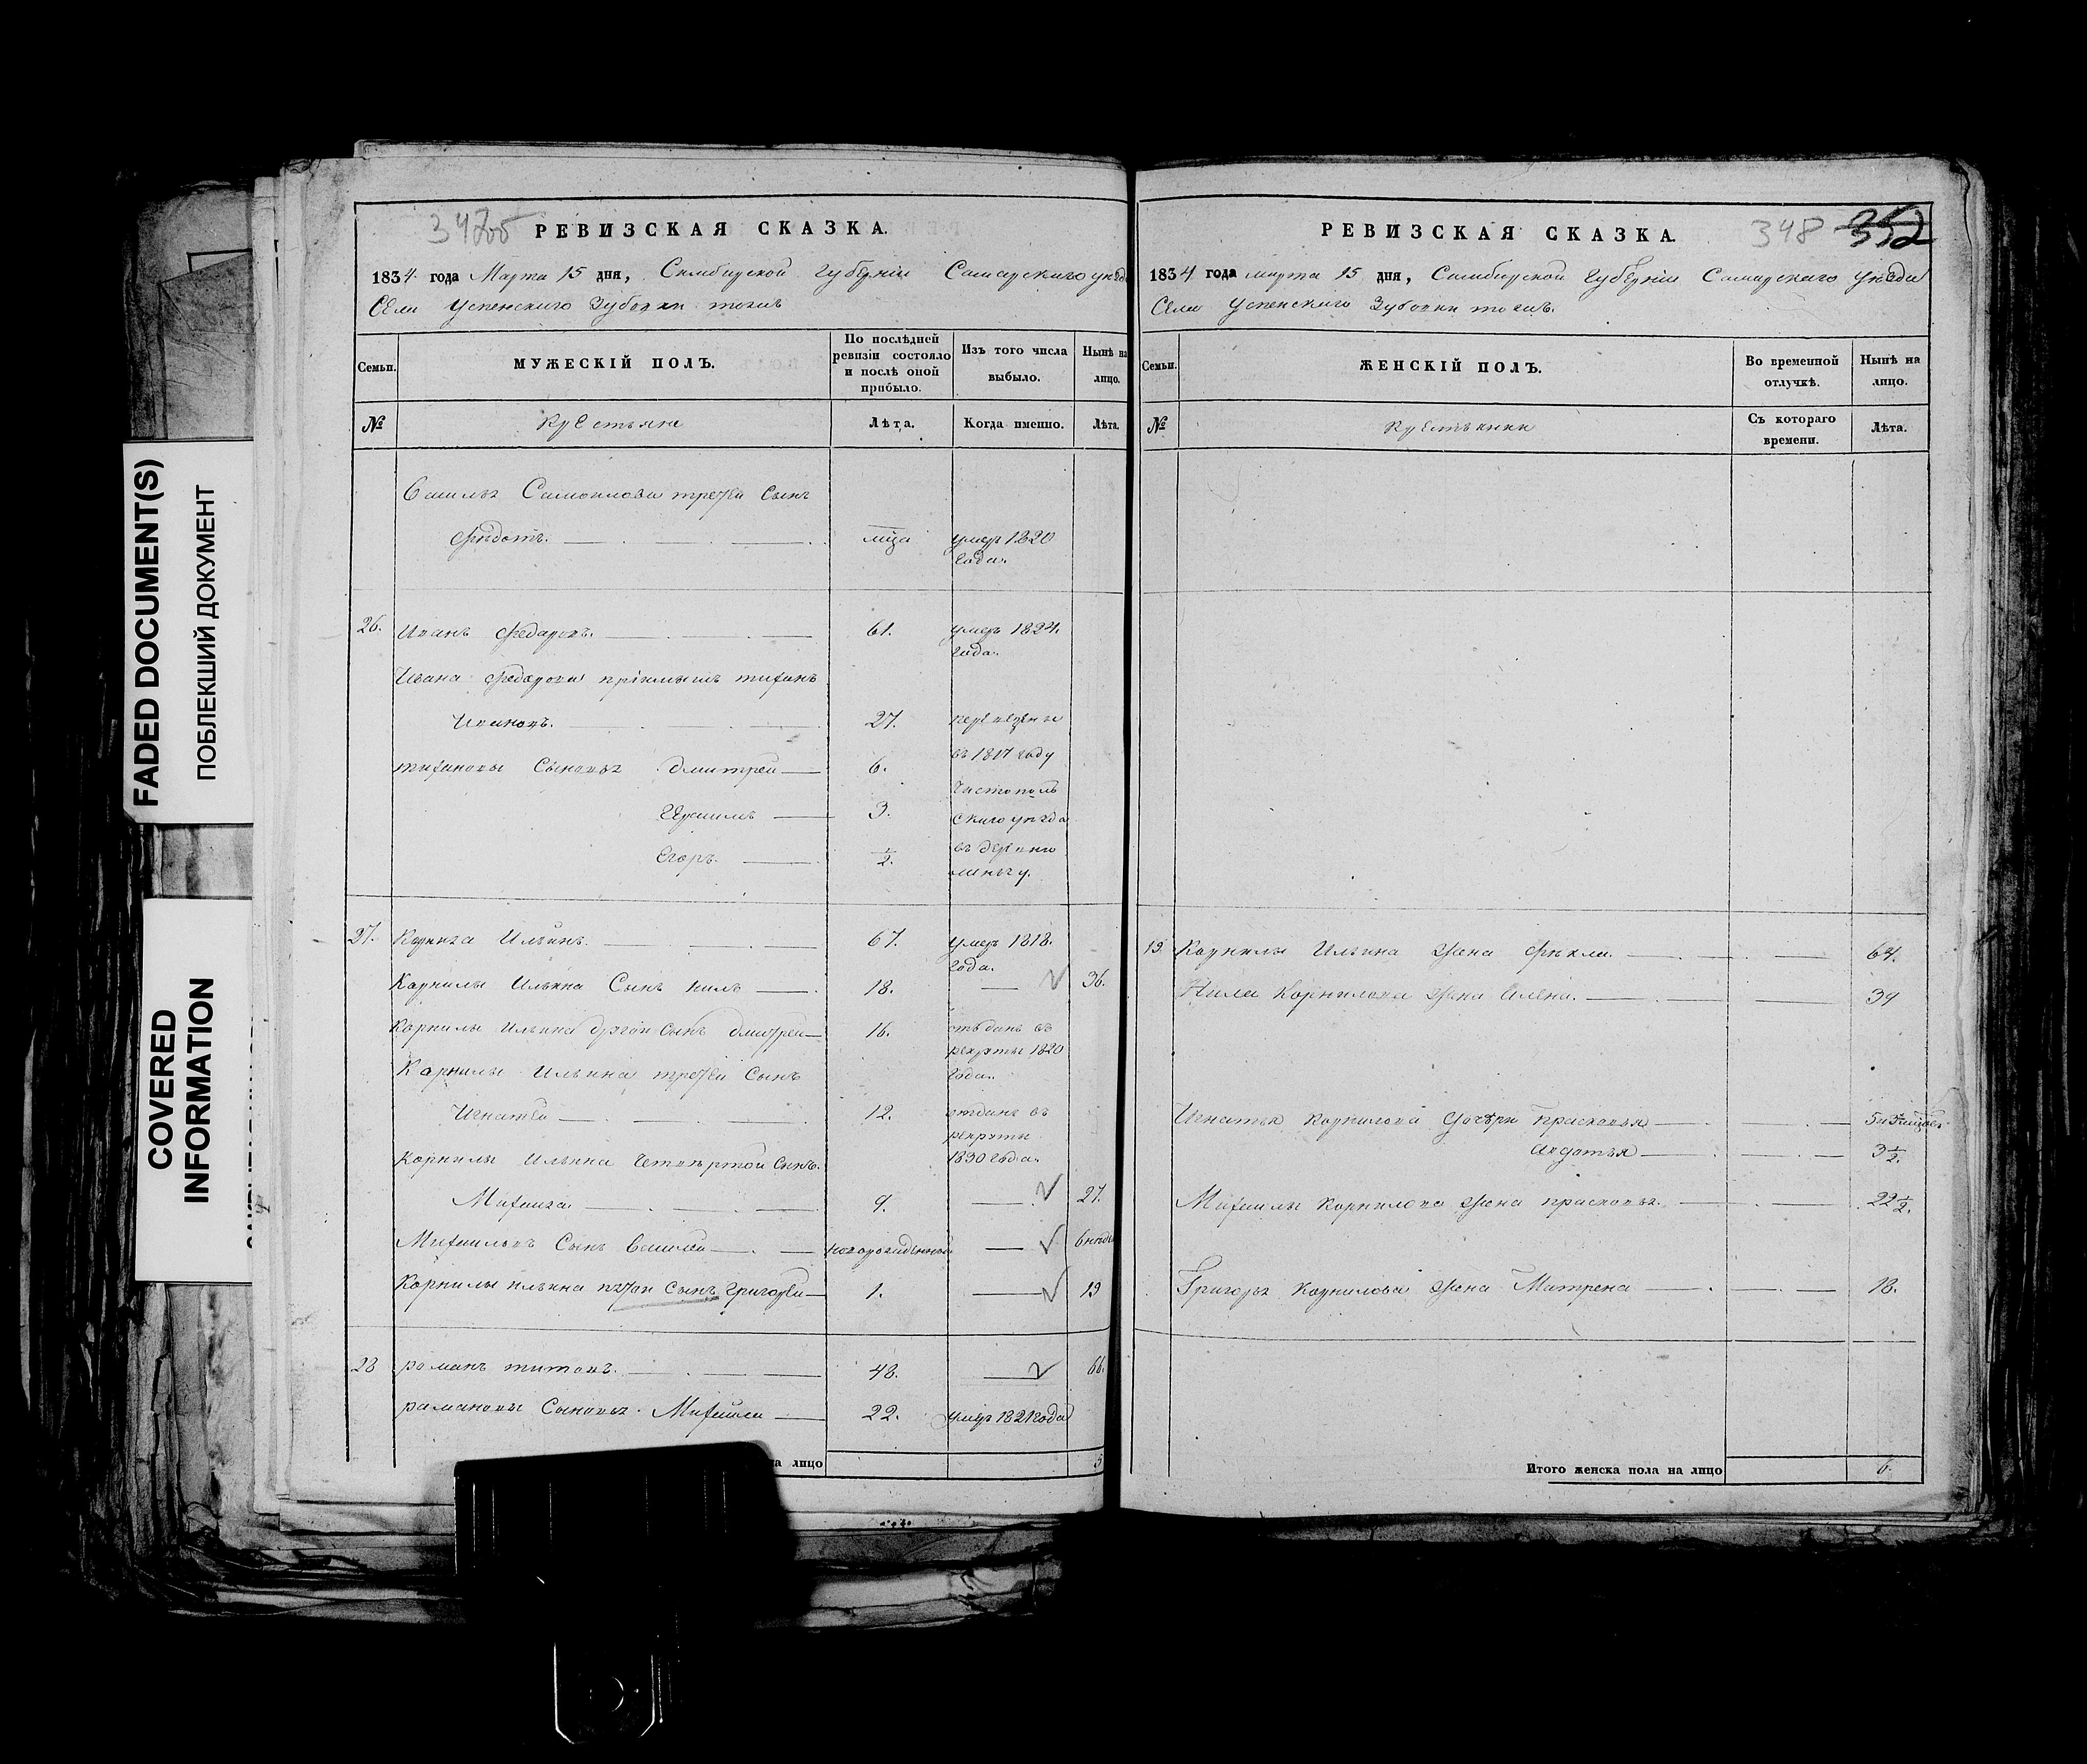 FADED DOCUMENT(S)
ПОБЛЕКШИЙ ДОКУМЕНТ
COVERED
INFORMATION
РЕВИЗСКАЯ СКАЗКА.
1834 года Марта 15 дня, Симбирской Губернiи Самарскаго уѣзда
Села Успенскаго Зубовки тожъ
Семьи.
МУЖЕСКІЙ ПОЛЪ.
По послѣдней ревизіи состояло и послѣ оной прибыло.
Изъ того числа выбыло.
Нынѣ на лицо.
№
Крестьяне
Лѣта.
Когда именно.
Лѣта.
Василья Самойлова третей Сынъ
Федотъ. умеръ 1820
года.
26. Иванъ Федаровъ. 61. умеръ 1824.
года.
Ивана Федарова прiемышъ
Ивановъ. 27.
Сыновья Дмитрей 6. въ 1817 году
Герасимъ 3. скаго уѣзда
Егоръ. 1/2. въ деревню
27. Корнила Ильинъ. 67. умеръ 1818.
года.
Карнилы Ильина Сынъ Нилъ 18. 36.
Корнилы Ильина другой Сынъ Дмитрей 16. отданъ въ
рекруты 1820
Корнилы Ильина третей Сынъ года.
Игнатей 12. отданъ въ
рекруты
Корнилы Ильина Четвертой Сынъ. 1830 года.
Михаила. 9. 27.
Михайловъ Сынъ Василей новорожденной
Корнилы Ильина пятой Сынъ Григорей 1. 19
28 Романъ Титовъ. 48. 66.
Романовы Сыновья Михайла 22. умеръ 1821 года
на лицо 5
РЕВИЗСКАЯ СКАЗКА.
348 352
1834 года марта 15 дня, Симбирской Губернiи Самарскаго уѣзда
Села Успенскаго Зубовки тожъ.
Семьи.
ЖЕНСКІЙ ПОЛЪ.
Во временной отлучкѣ.
Нынѣ на лицо.
№
Крестьянки
Съ котораго времени.
Лѣта.
Корнилы Ильина Жена Фекла. 64.
Нила Корнилова Жена Алена. 39
Игнатья Корнилова Дочери Прасковья
Авдотья 3 1/2.
Михаилы Корнилова Жена Прасковья. 22 1/2.
Григорья Корнилова Жена Матрена 18.
Итого женска пола на лицо 6.